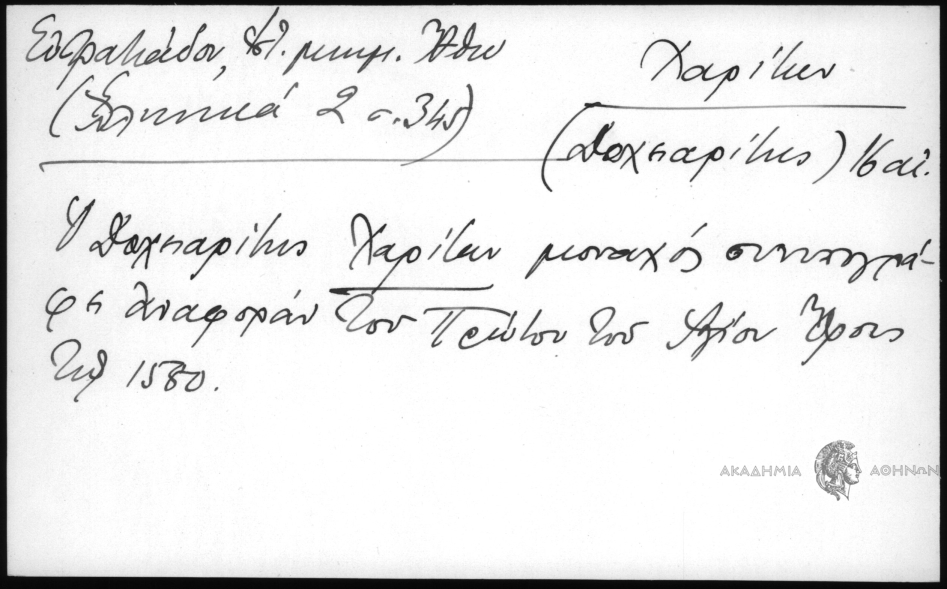 Εὐστρατιάδου, Ἱστ. μνημ. Ἄθω
(Ἑλληνικά 2 σ. 345)
Χαρίτων
(Δοχειαρίτης) 16 αἰ.
Ὁ Δοχειαρίτης Χαρίτων μοναχός συνυπογρά-
φει ἀναφοράν τοῦ Πρώτου τοῦ Ἁγίου Ὄρους
τῷ 1580.
ΑΚΑΔΗΜΙΑ ΑΘΗΝΩΝ